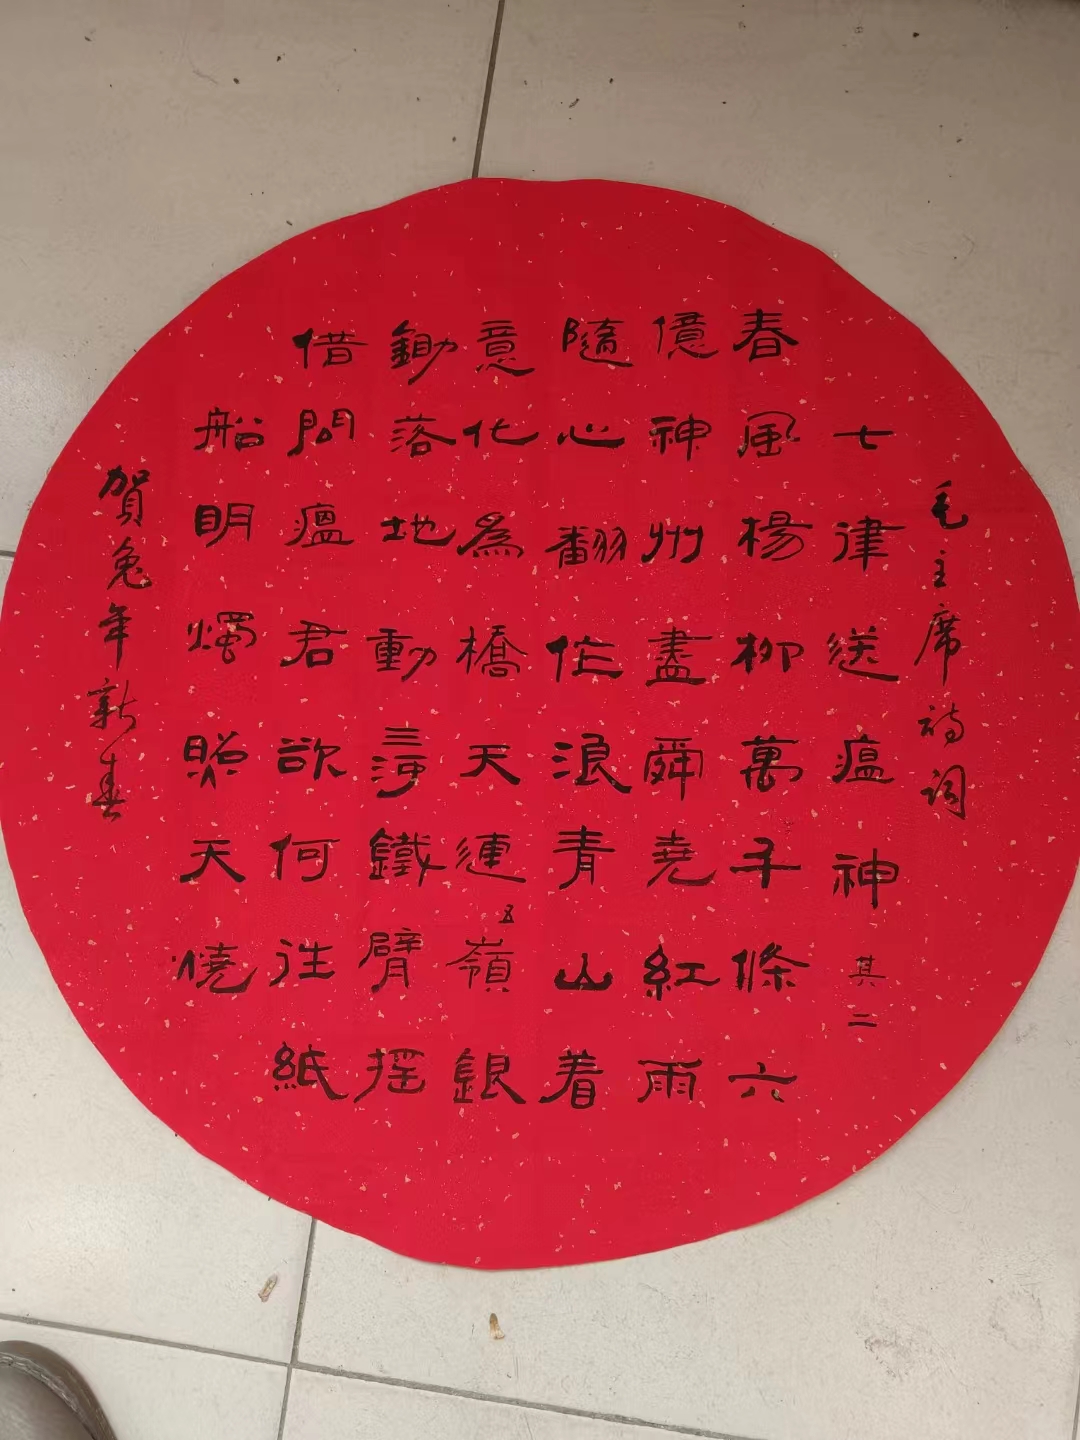 毛主席詩詞
七律送瘟神其二
春風楊柳萬千條六
億神州盡舜堯紅雨
隨心翻作浪青山着
意化為橋天連五嶺銀
鋤落地動三河鐵臂搖
借問瘟君欲何往紙
船明燭照天燒
賀兔年新春